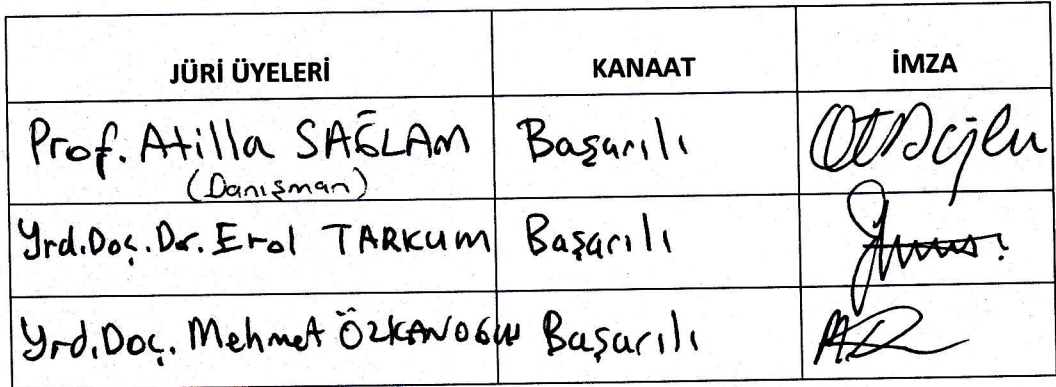 JÜRİ ÜYELERİ KANAAT İMZA
Prof. Atilla SAĞLAM Başarılı
(Danışman)
Yrd.Doç.Dr. Erol TARKUM Başarılı
Yrd.Doç. Mehmet ÖZKANOĞLU Başarılı